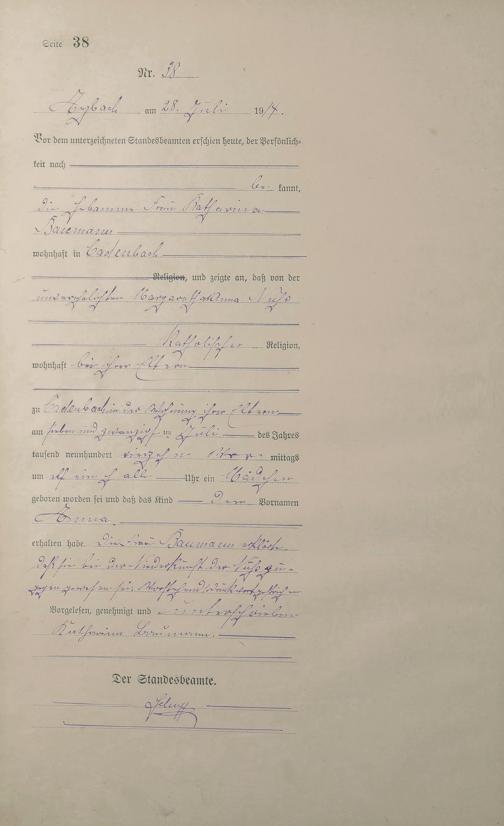 Seite 38
Nr. 38
Arzbach am 28. Juli 1914.
Vor dem unterzeichneten Standesbeamten erschien heute, der Persönlich-
keit nach
be- kannt,
die Hebamme Frau Katharina
Baumann
wohnhaft in Cadenbach
Religion, und zeigte an, daß von der
unverehelichten Margaretha Anna
Katholischer Religion,
wohnhaft bei ihren Eltern
zu Cadenbach in der Wohnung ihrer Eltern
am sieben und zwanzigsten Juli des Jahres
tausend neunhundert vierzehn Vor- mittags
um elf ein halb Uhr ein Mädchen
geboren worden sei und daß das Kind den Vornamen
Anna
erhalten habe. Die Frau Baumann erklärte
daß sie bei der Niederkunft der zu-
gegen gewesen sei.
Vorgelesen, genehmigt und unterschrieben
Katharina Baumann.
Der Standesbeamte.